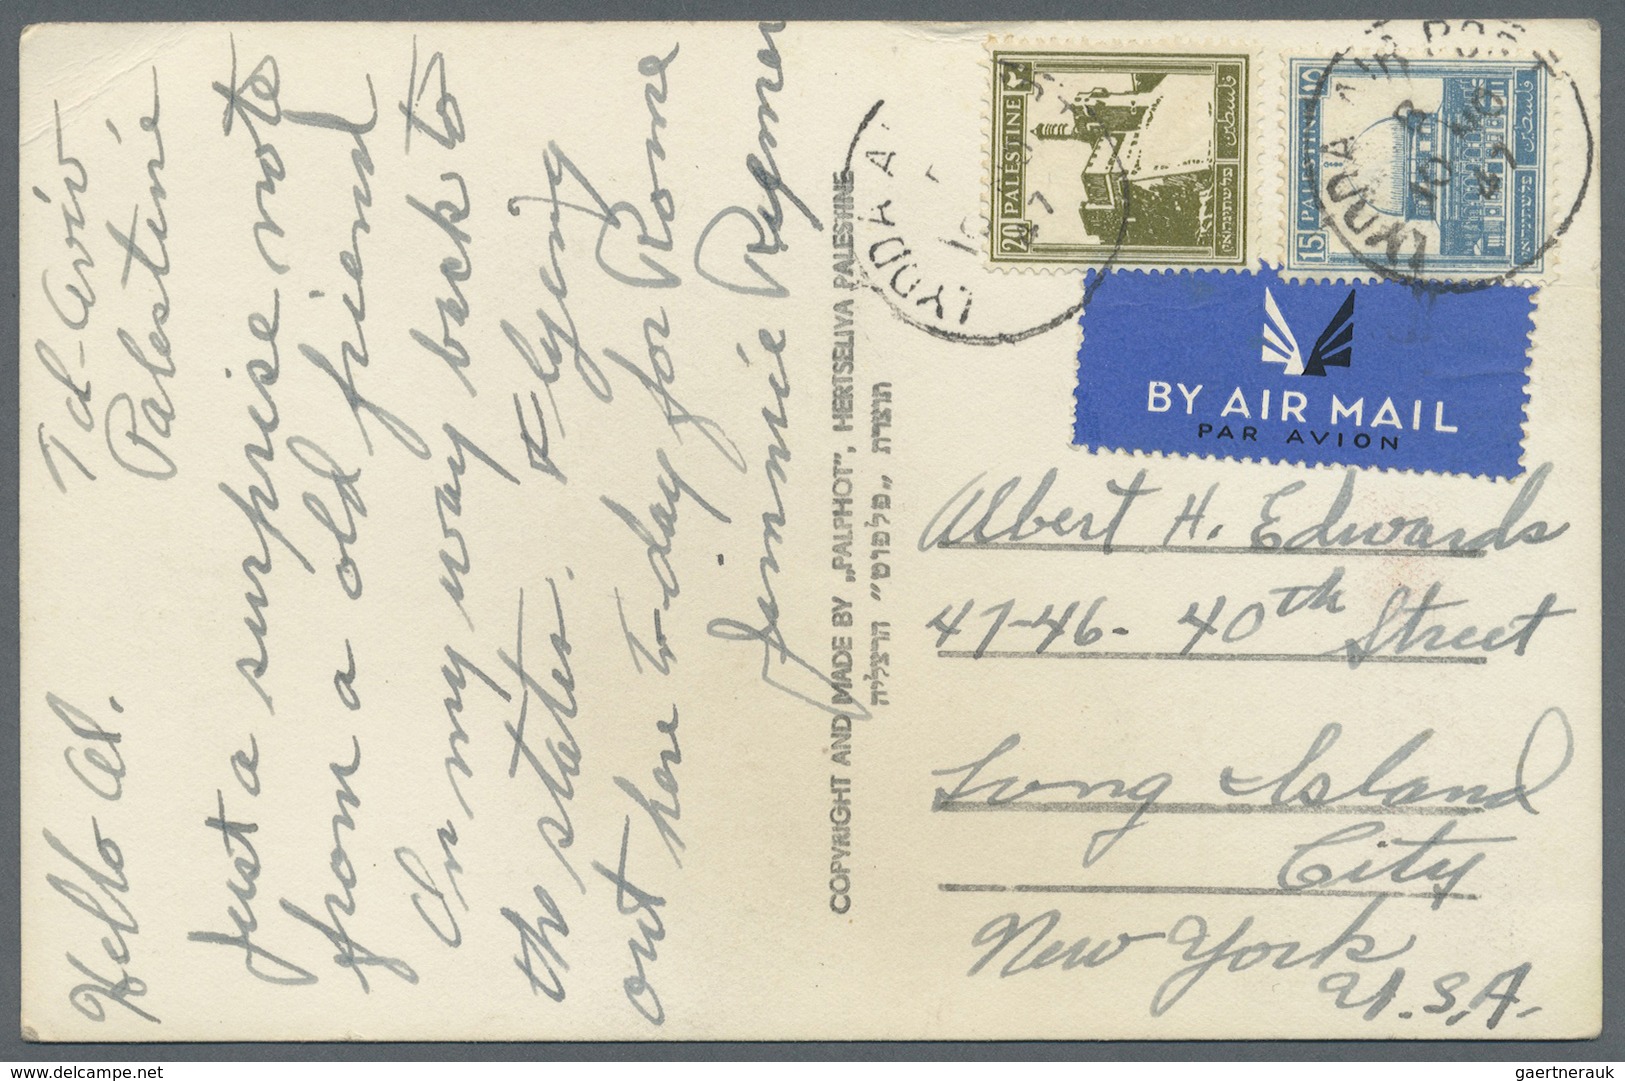 Tel-Aviv
Palestine
Hello Al.
Just a surprise note
from a old friend
On my way back to
the states. Flying
out here to-day for Rome
Jimmie
COPYRIGHT AND MADE BY „PALPHOT", HERTSELIYA PALESTINE
תוצרת „פלפוט" הרצליה
20 PALESTINE ٢٠
فلسطين
פלשתינה א״י
15 PALESTINE ١٥
فلسطين
פלשתינה א״י
LYDDA A
47
LYDDA AIR PORT
8
10
47
BY AIR MAIL
PAR AVION
Albert H. Edwards
47-46- 40th Street
Long Island
City
New York
U.S.A.
Please visit: www.delcampe.net
gaertnerauk